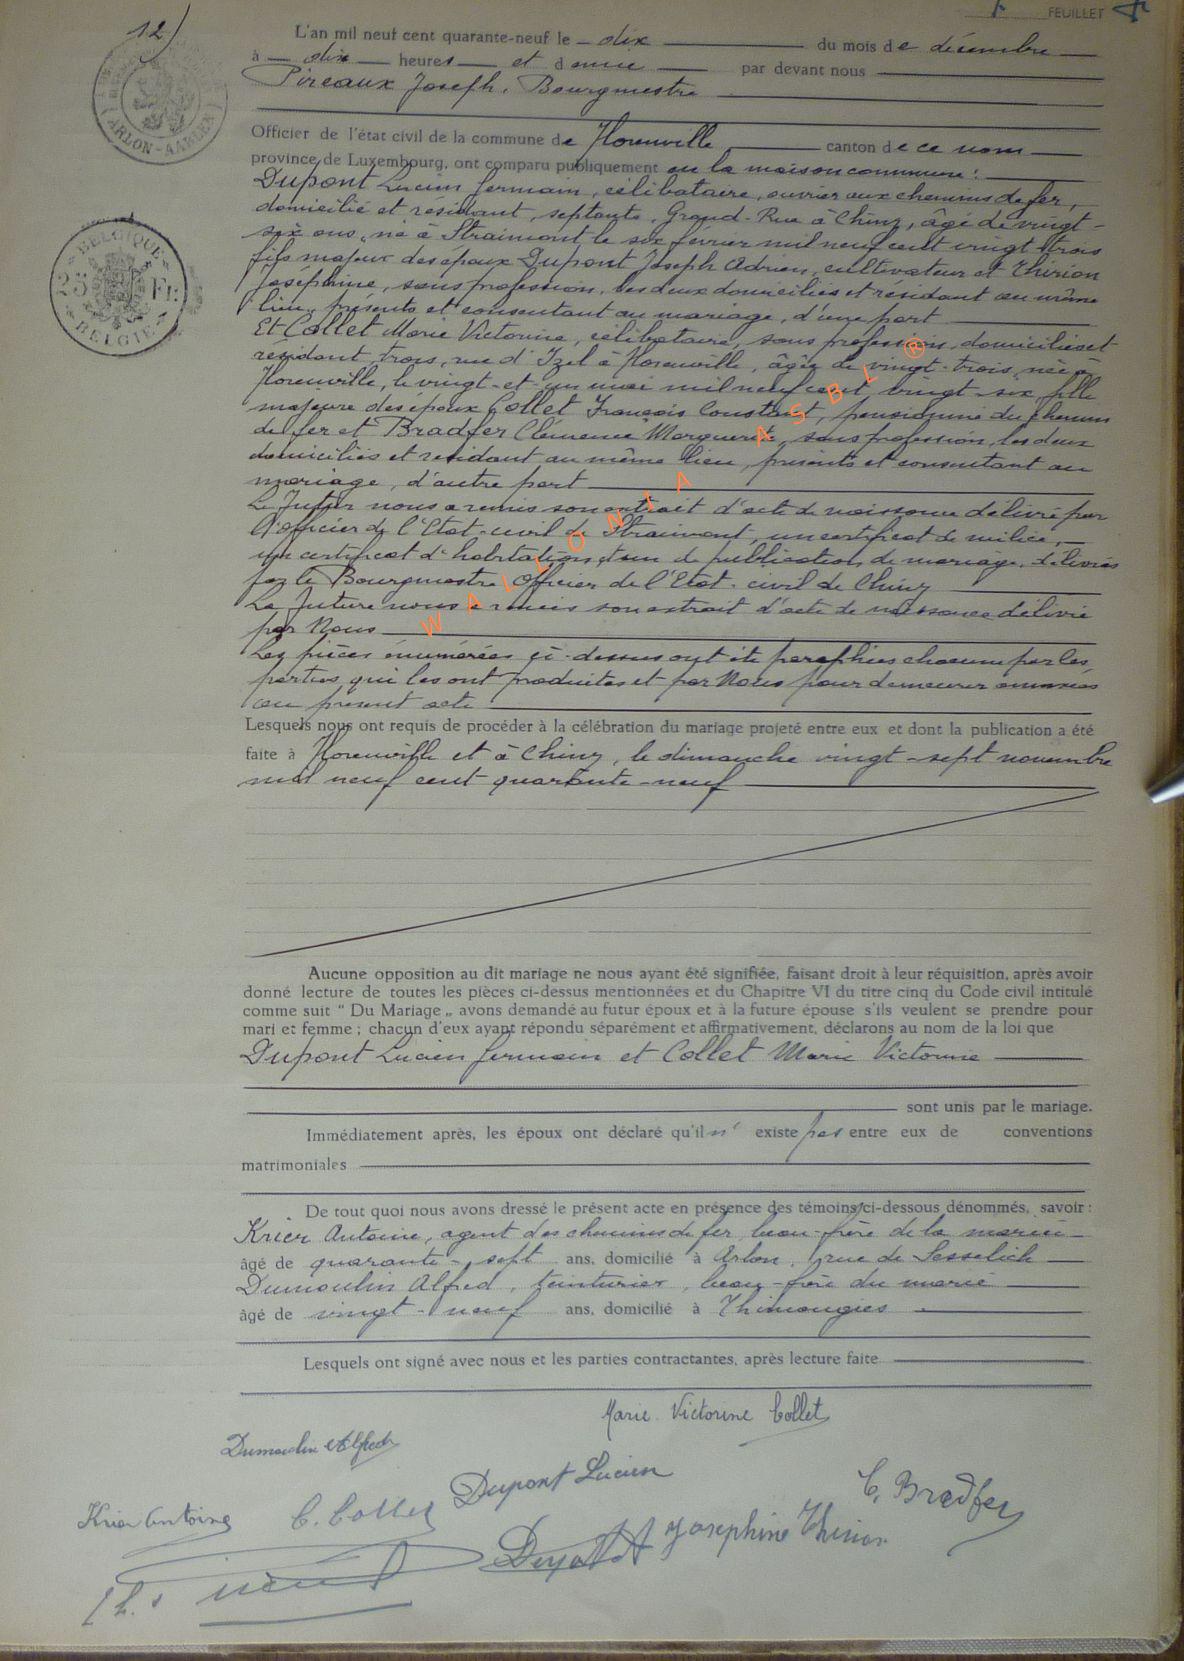 12)
FEUILLET
ARLON-AARLEN
BELGIQUE
25 Fr.
BELGIË
L'an mil neuf cent quarante-neuf le dix du mois de décembre
à dix heures et demie par devant nous
Pireaux Joseph, Bourgmestre
Officier de l'état civil de la commune de Florenville canton de ce nom
province de Luxembourg, ont comparu publiquement en la maison commune:
Dupont Lucien Germain, célibataire, ouvrier aux chemins de fer,
domicilié et résidant, septante, Grand-Rue à Chiny, âgé de vingt-
six ans, né à Straimont le six février mil neuf cent vingt trois
fils majeur des époux Dupont Joseph Adrien, cultivateur et Thirion
Joséphine, sans profession, les deux domiciliés et résidant au même
lieu, présents et consentant au mariage, d'une part
Et Collet Marie Victorine, célibataire, sans profession, domiciliée et
résidant, trois, rue d'Izel à Florenville, âgée de vingt-trois, née à
Florenville, le vingt-et-un mai mil neuf cent vingt-six, fille
majeure des époux Collet François Constant, pensionné du chemin
de fer et Bradfer Clémence Marguerite, sans profession, les deux
domiciliés et résidant au même lieu, présents et consentant au
mariage, d'autre part
Le Futur nous a remis son extrait d'acte de naissance délivré par
l'Officier de l'Etat-civil de Straimont, un certificat de milice,
un certificat d'habitation, et un de publication de mariage, délivrés
par le Bourgmestre Officier de l'Etat-civil de Chiny
La Future nous a remis son extrait d'acte de naissance délivré
par Nous
Les pièces énumérées ci-dessus ont été paraphées chacune par les
parties qui les ont produites et par Nous pour demeurer annexées
au présent acte
Lesquels nous ont requis de procéder à la célébration du mariage projeté entre eux et dont la publication a été
faite à Florenville et à Chiny, le dimanche vingt-sept novembre
mil neuf cent quarante-neuf
WALLONIA ASBL ®
Aucune opposition au dit mariage ne nous ayant été signifiée, faisant droit à leur réquisition, après avoir
donné lecture de toutes les pièces ci-dessus mentionnées et du Chapitre VI du titre cinq du Code civil intitulé
comme suit " Du Mariage „ avons demandé au futur époux et à la future épouse s'ils veulent se prendre pour
mari et femme ; chacun d'eux ayant répondu séparément et affirmativement, déclarons au nom de la loi que
Dupont Lucien Germain et Collet Marie Victorine
sont unis par le mariage.
Immédiatement après, les époux ont déclaré qu'il n' existe pas entre eux de conventions
matrimoniales
De tout quoi nous avons dressé le présent acte en présence des témoins ci-dessous dénommés, savoir :
Krier Antoine, agent des chemins de fer, beau-frère de la mariée
âgé de quarante-sept ans, domicilié à Arlon, rue de Sesselich
Dumoulin Alfred, teinturier, beau-frère du marié
âgé de vingt-neuf ans, domicilié à Thimougies
Lesquels ont signé avec nous et les parties contractantes, après lecture faite
Marie Victorine Collet
Dumoulin Alfred
Dupont Lucien
C. Bradfer
Krier Antoine
C. Collet
Josephine Thirion